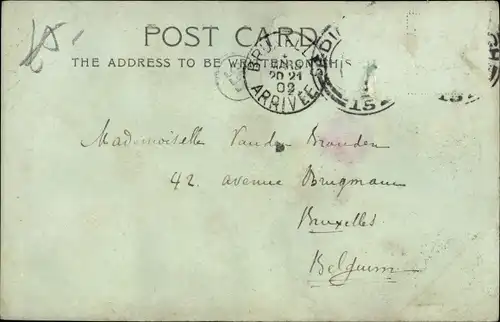 POST CARD
THE ADDRESS TO BE WRITTEN ON THIS
BRUXELL
20 21
02
ARRIVÉE
15
15
Mademoiselle Vanden Branden
42 avenue Brugmann
Bruxelles
Belgium